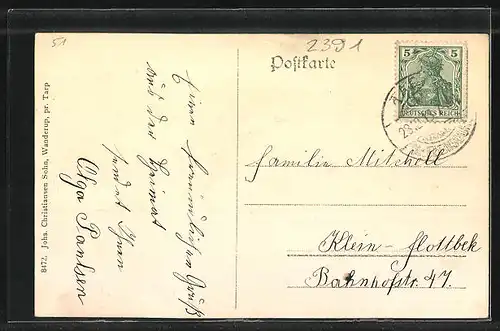 51
2391
Postkarte
5 5
DEUTSCHES REICH
Einen freundlichen Gruß
aus der Heimat
sendet Ihnen
Olga Paulsen
Familie Mitchell
Klein-Flottbek
Bahnhofstr. 47.
8472. Johs. Christiansen Sohn, Wanderup, pr. Tarp